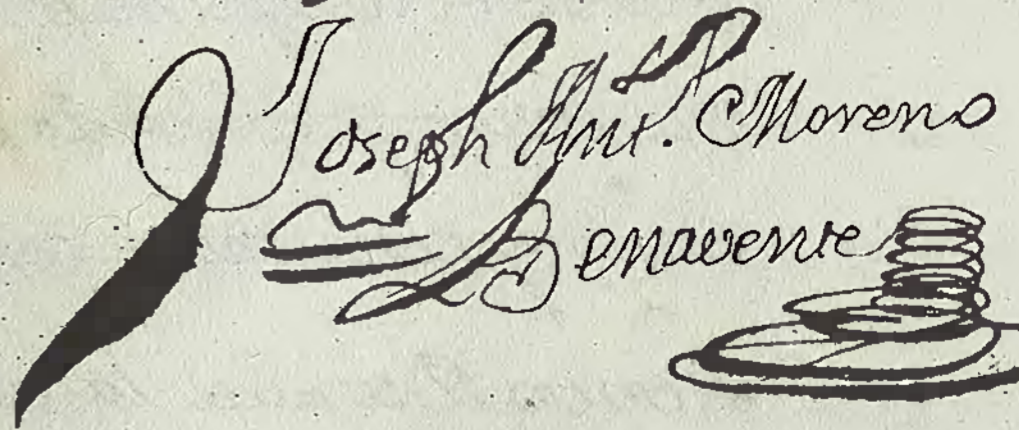 Joseph Ant. Moreno
Benavente